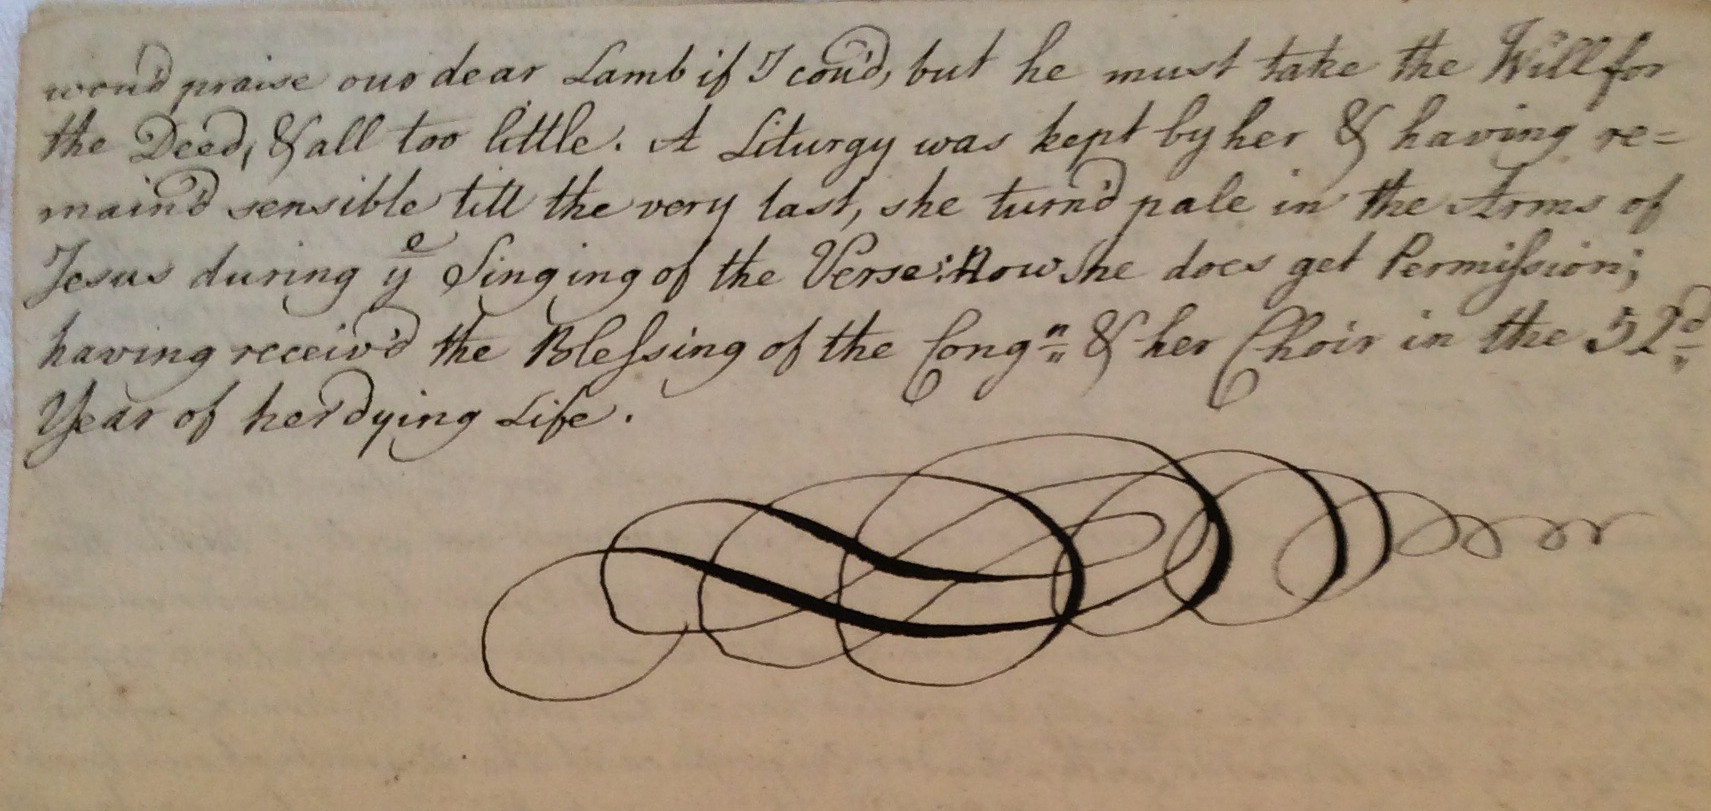 wou'd praise our dear Lamb if I cou'd, but he must take the Will for
the Deed, & all too little. A Liturgy was kept by her & having re=
main'd sensible till the very last, she turn'd pale in the Arms of
Jesus during yᵉ Singing of the Verse: Now She does get Permiſsion;
having receiv'd the Bleſsing of the Congⁿ & her Choir in the 52ᵈ
Year of her dying Life.